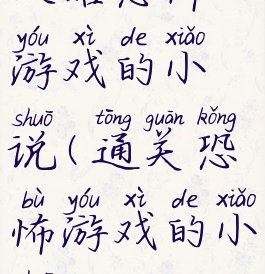 yóu xì de xiǎo
游戏的小
shuō tōng guān kǒng
说(通关恐
bù yóu xì de xiǎo
怖游戏的小